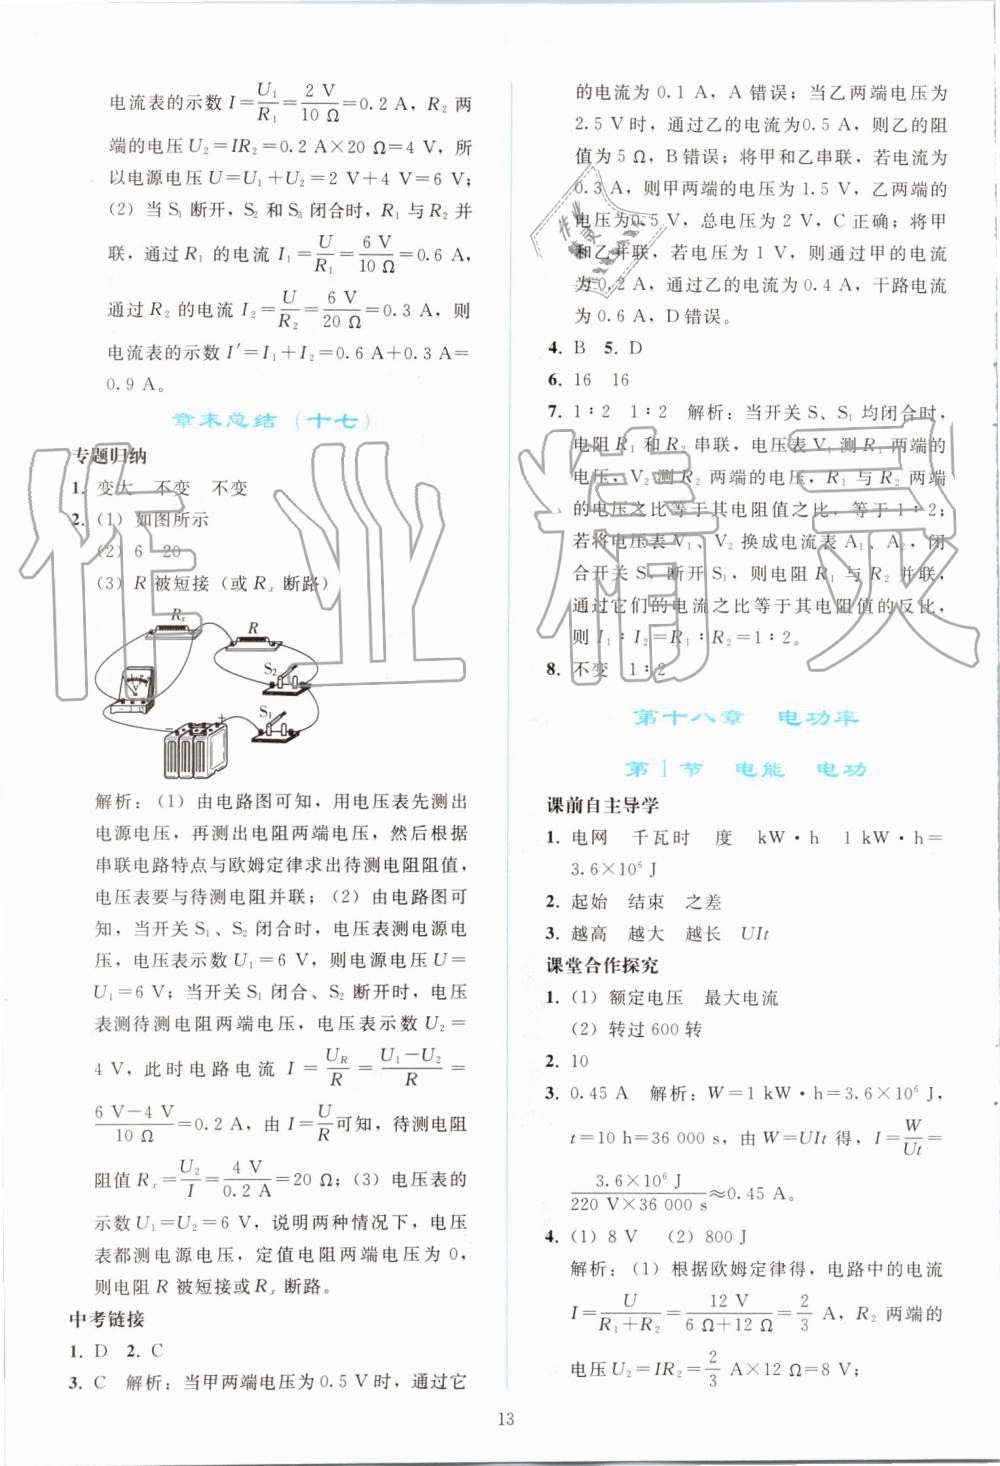 电流表的示数 I=U₁/R₁=2 V/10 Ω=0.2 A，R₂ 两
端的电压 U₂=IR₂=0.2 A×20 Ω=4 V，所
以电源电压 U=U₁+U₂=2 V+4 V=6 V；
(2) 当 S₁ 断开，S₂ 和 S₃ 闭合时，R₁ 与 R₂ 并
联，通过 R₁ 的电流 I₁=U/R₁=6 V/10 Ω=0.6 A，
通过 R₂ 的电流 I₂=U/R₂=6 V/20 Ω=0.3 A，则
电流表的示数 I′=I₁+I₂=0.6 A+0.3 A=
0.9 A。
章末总结（十七）
专题归纳
1. 变大 不变 不变
2. (1) 如图所示
(2) 6 20
(3) R 被短接（或 Rₓ 断路）
Rₓ
R
S₂
V
S₁
+
解析：(1) 由电路图可知，用电压表先测出
电源电压，再测出电阻两端电压，然后根据
串联电路特点与欧姆定律求出待测电阻阻值，
电压表要与待测电阻并联；(2) 由电路图可
知，当开关 S₁、S₂ 闭合时，电压表测电源电
压，电压表示数 U₁=6 V，则电源电压 U=
U₁=6 V；当开关 S₁ 闭合、S₂ 断开时，电压
表测待测电阻两端电压，电压表示数 U₂=
4 V，此时电路电流 I=U_R/R=(U₁-U₂)/R=
(6 V-4 V)/10 Ω=0.2 A，由 I=U/R可知，待测电阻
阻值 Rₓ=U₂/I=4 V/0.2 A=20 Ω；(3) 电压表的
示数 U₁=U₂=6 V，说明两种情况下，电压
表都测电源电压，定值电阻两端电压为 0，
则电阻 R 被短接或 Rₓ 断路。
中考链接
1. D 2. C
3. C 解析：当甲两端电压为 0.5 V 时，通过它
的电流为 0.1 A，A 错误；当乙两端电压为
2.5 V 时，通过乙的电流为0.5 A，则乙的阻
值为 5 Ω，B错误；将甲和乙串联，若电流为
0.3 A，则甲两端的电压为 1.5 V，乙两端的
电压为0.5 V，总电压为 2 V，C 正确；将甲
和乙并联，若电压为 1 V，则通过甲的电流
为 0.2 A，通过乙的电流为 0.4 A，干路电流
为 0.6 A，D错误。
4. B 5. D
6. 16 16
7. 1∶2 1∶2 解析：当开关 S、S₁ 均闭合时，
电阻 R₁ 和 R₂ 串联，电压表 V₁ 测 R₁ 两端的
电压，V₂ 测 R₂ 两端的电压，R₁ 与 R₂ 两端
的电压之比等于其电阻值之比，等于 1∶2；
若将电压表 V₁、V₂ 换成电流表 A₁、A₂，闭
合开关 S，断开 S₁，则电阻 R₁ 与 R₂ 并联，
通过它们的电流之比等于其电阻值的反比，
则 I₁∶I₂=R₁∶R₂=1∶2。
8. 不变 1∶2
第十八章 电功率
第 1 节 电能 电功
课前自主导学
1. 电网 千瓦时 度 kW·h 1 kW·h=
3.6×10⁶ J
2. 起始 结束 之差
3. 越高 越大 越长 UIt
课堂合作探究
1. (1) 额定电压 最大电流
(2) 转过 600 转
2. 10
3. 0.45 A 解析：W=1 kW·h=3.6×10⁶ J，
t=10 h=36 000 s，由 W=UIt 得，I=W/Ut=
3.6×10⁶ J/(220 V×36 000 s)≈0.45 A。
4. (1) 8 V (2) 800 J
解析：(1) 根据欧姆定律得，电路中的电流
I=U/(R₁+R₂)=12 V/(6 Ω+12 Ω)=2/3 A，R₂ 两端的
电压 U₂=IR₂=2/3 A×12 Ω=8 V；
13
作业精灵
作业
精灵